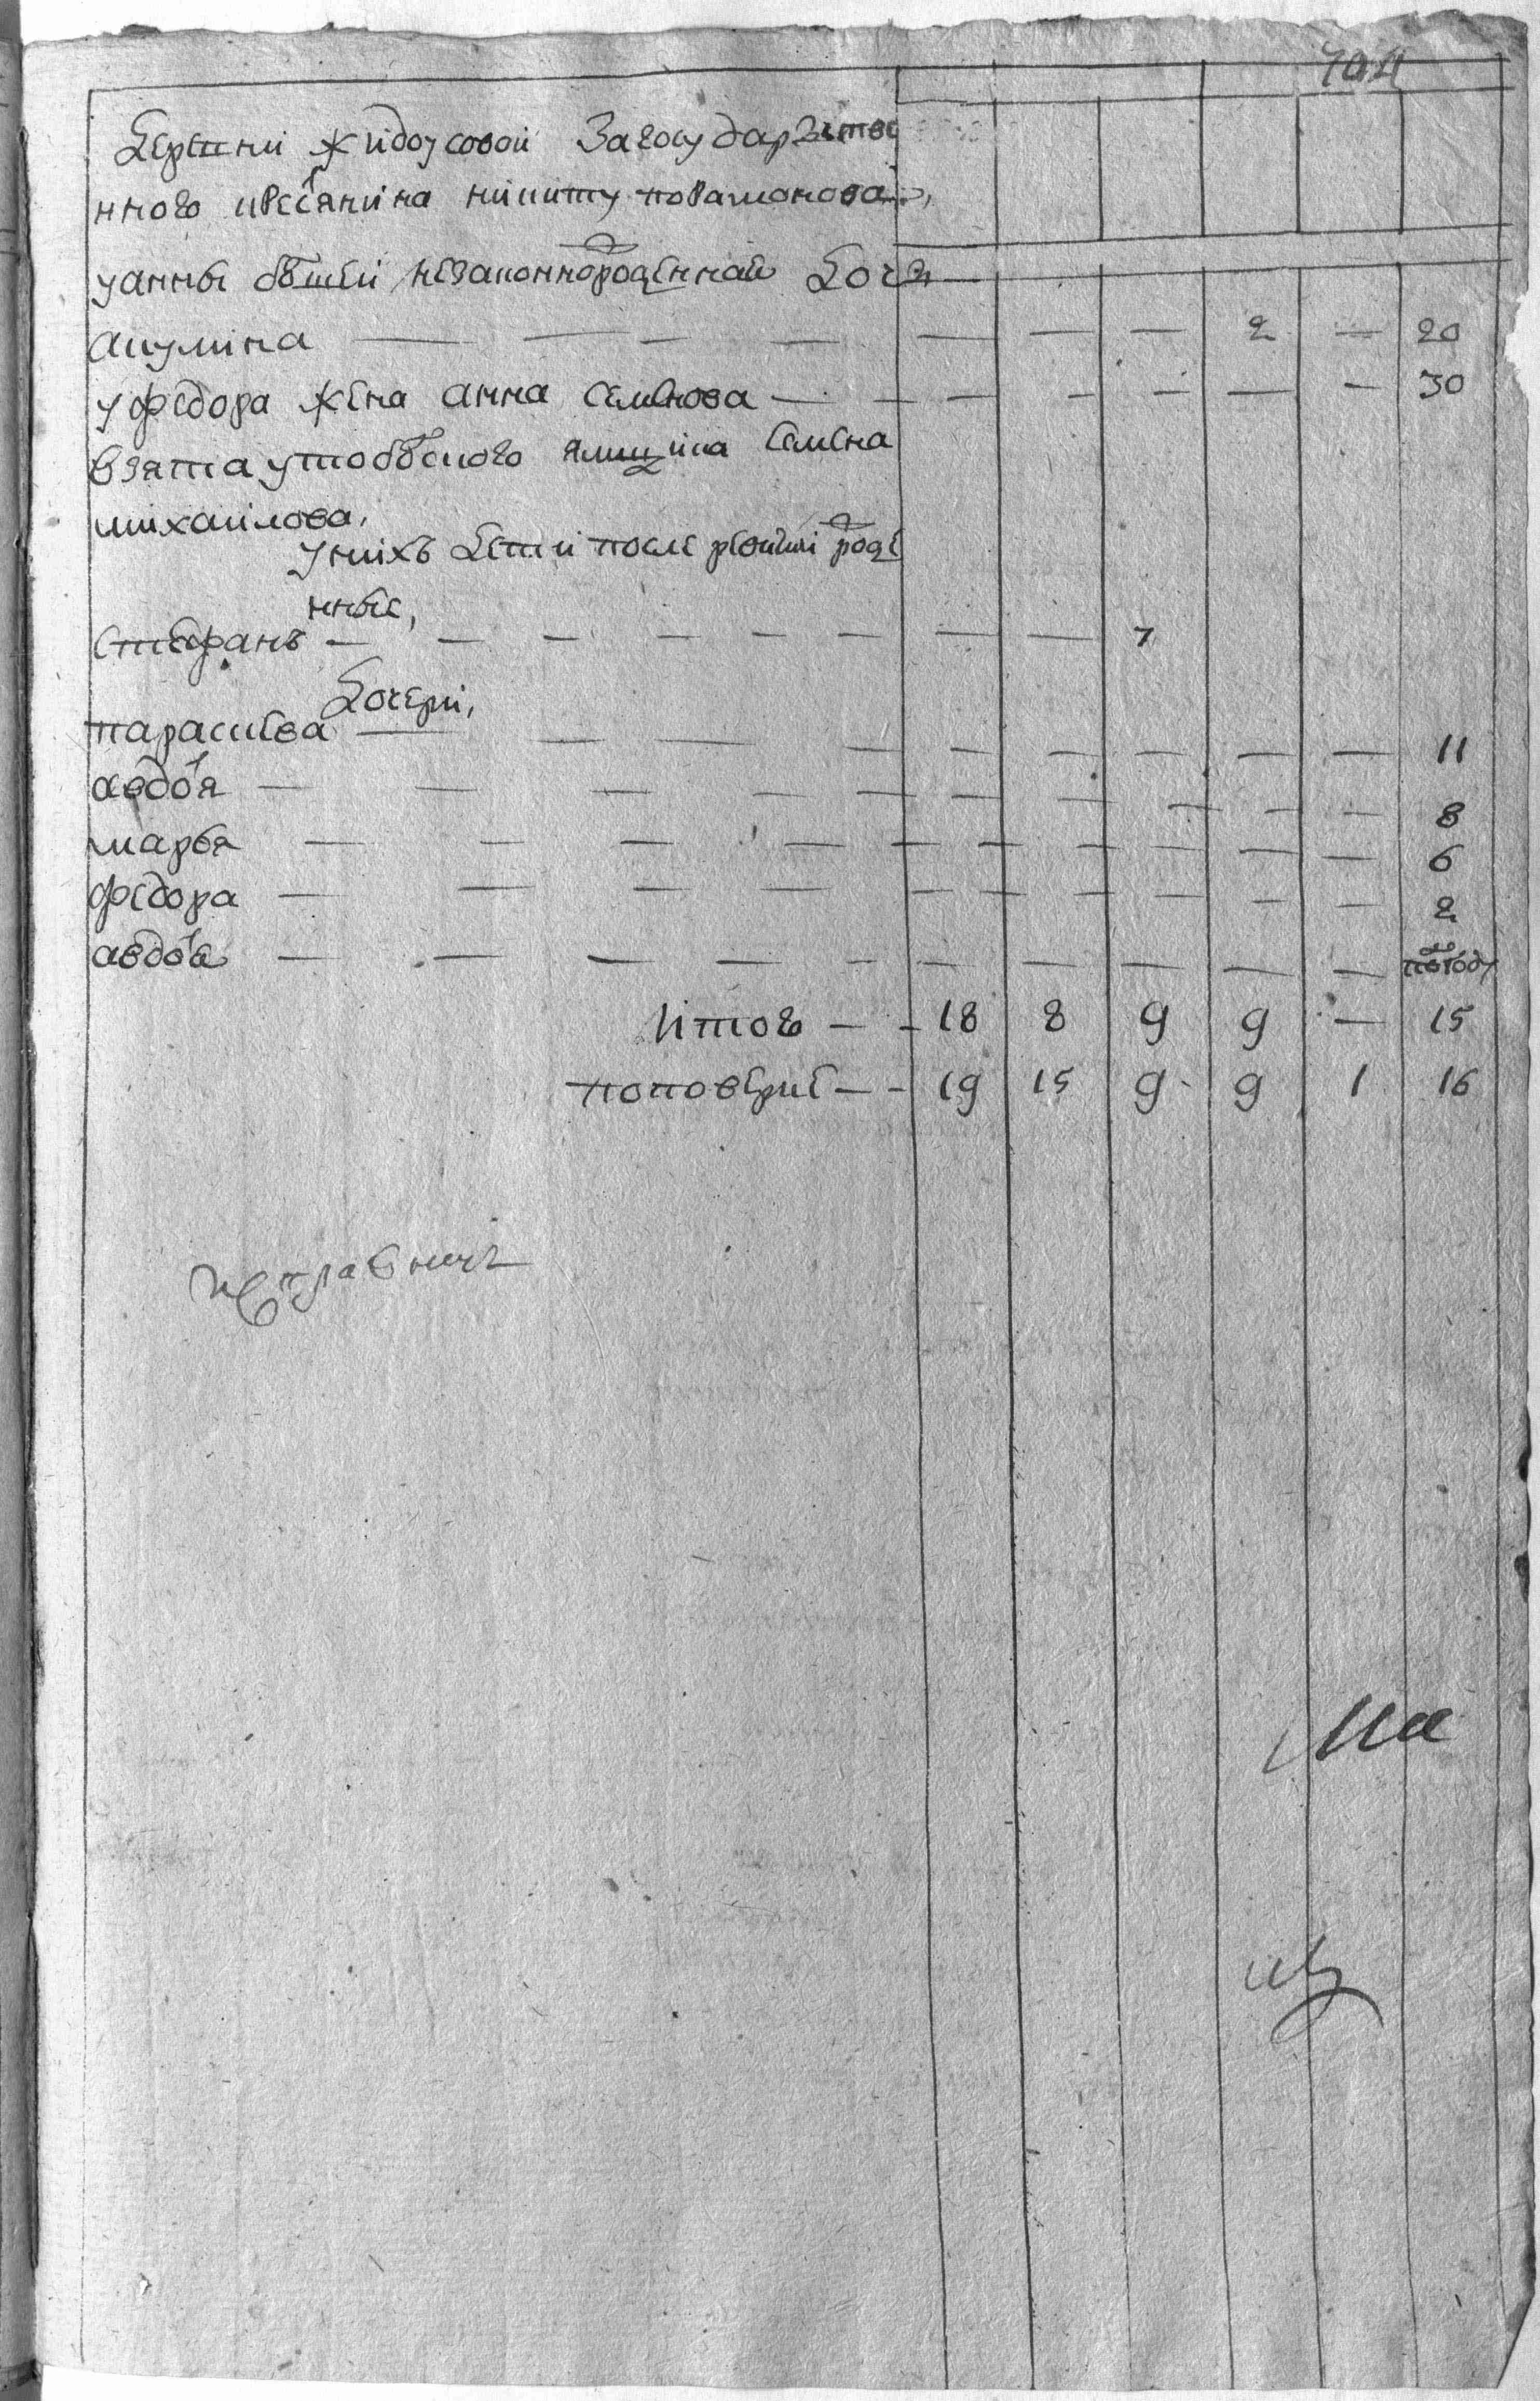 704
деревни жидоусовой Загосударъстве
нного крестьянина никиту поваλонова,
уанны бывшей незаконнорожденная дочь
акулина — — — — — — — 2 — 20
уфедора жена анна семенова — — — — — — — 30
взята утобольского ямщика семена
михаилова,
унихъ дети после ревизии рожде
нные,
стефанъ — — — — — — — — 7
дочери,
парасковья — — — — — — — — — 11
авдотья — — — — — — — — — — 8
марья — — — — — — — — — — 6
федора — — — — — — — — — — 2
авдотья — — — — — — — — — — полгоду
Итого — — 18 8 9 9 — 15
поповерке — — 19 15 9 9 1 16
исправникъ